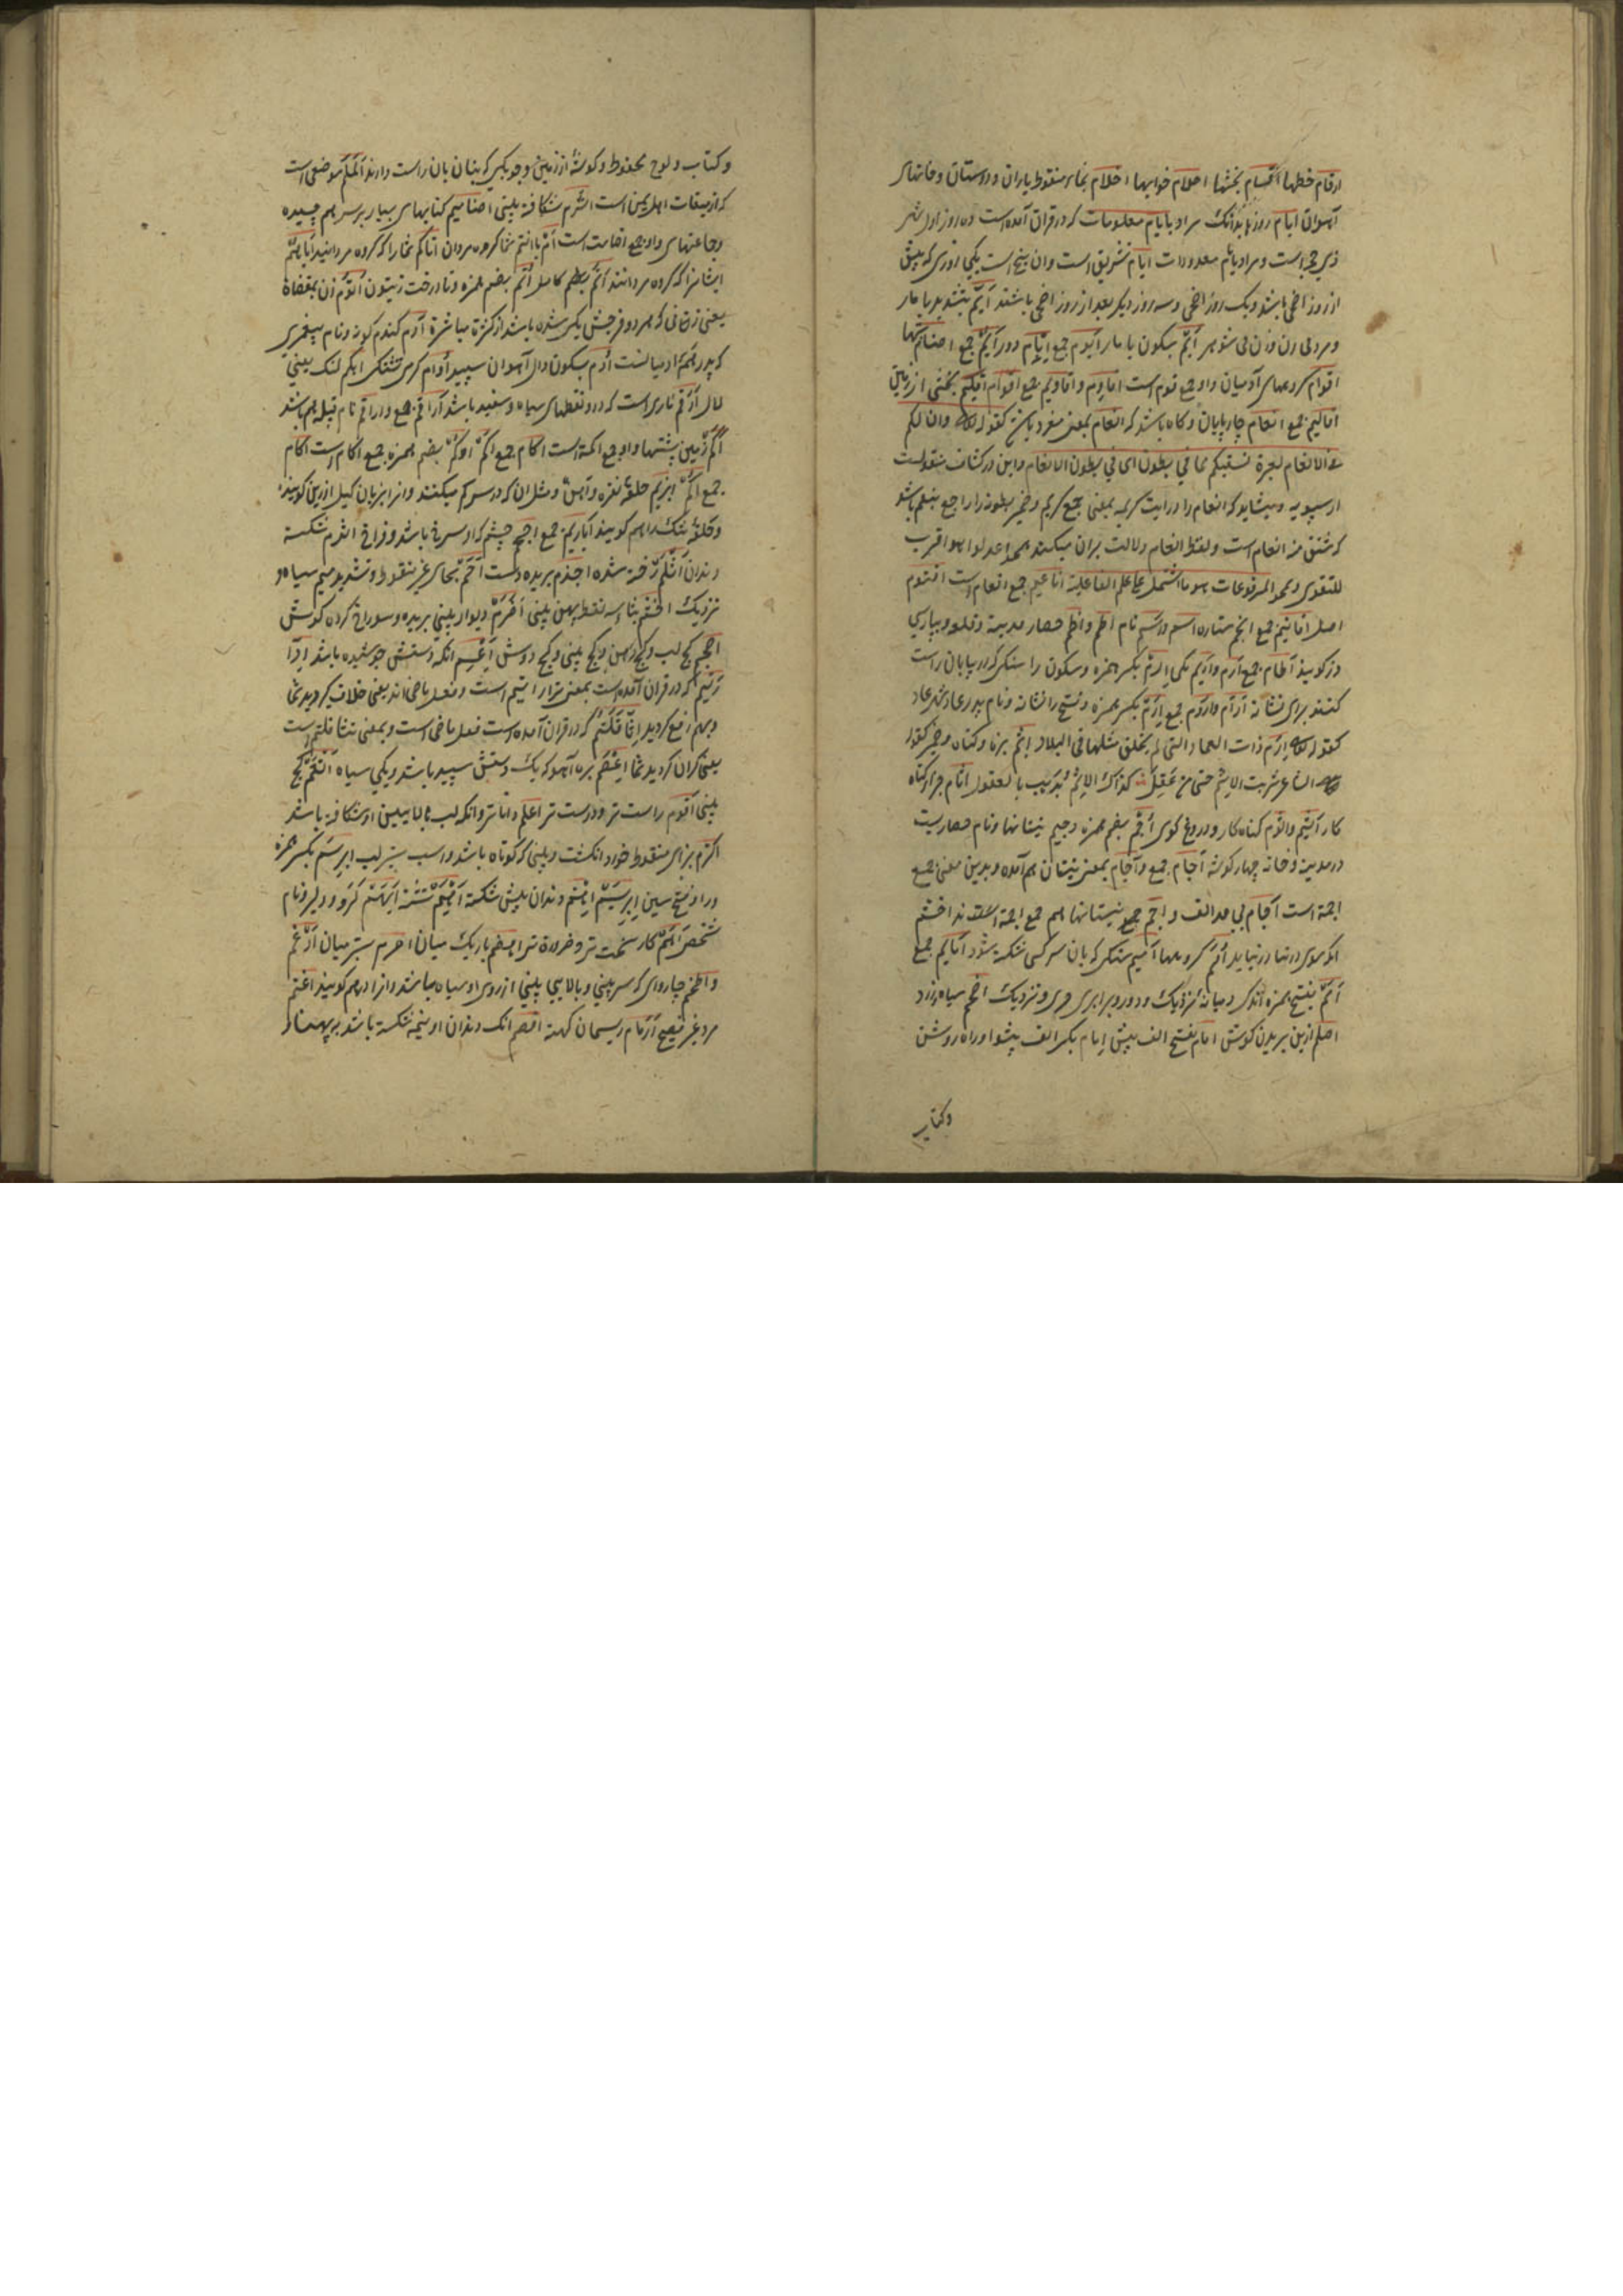 ارقام خطها اقسام بخشها احلام خوابها اخلام بخاء منقوط یاران و دوستان و خانهای
آهوان ایام روزها بدانک مراد بایام معلومات که در قران آمده است ده روز اول شهر
ذی حجه است و مراد بایام معدودات ایام تشریق است وان پنج است یکی روزی که پیش
از روز اضحی باشد و یک روز اضحی و سه روز دیگر بعد از روز اضحی باشند ایّم بتشدید یا مار
و مرد بی زن و زن بی شوهر ایْم بسکون یا مار ایوم جمع ایام دور ایم جمع اصنام بتها
اقوام گروههای آدمیان واو جمع قوم است اقاوم و اقاویم جمع اقوام اقلیم بخشی از زمین
اقالیم جمع انعام چارپایان و گاه باشد که انعام بمعنی مفرد باشد کقوله وان لکم
فی الانعام لعبرة نسقیکم مما فی بطونه ای فی بطون الانعام و این در کشاف منقولست
از سیبویه و میشاید که انعام را در ایت کریمه بمعنی جمع گیریم و ضمیر بطونه را راجع بنعم باشد
که مشتق منه انعام است و لفظ انعام دلالت بران میکند همچو اعدلوا هو اقرب
للتقوی و همچو المرفوعات هو ما اشتمل علی علم الفاعلیة اناعیم جمع انعام است اقنوم
اصل اقانیم جمع انجم ستاره اسم و اسم نام اطم و اطم حصار مدینه و قلعه و بپارسی
دز گویند آطام جمع ارم و اریم یکی ارم بکسر همزه و سکون را سنگی که در بیابان راست
کنند برای نشانه ارآم و اروم جمع ارم بکسر همزه و فتح را نشانه و نام پدر عاد و شهر عاد
کقوله ارم ذات العماد التی لم یخلق مثلها فی البلاد اثم بزه و گناه و خمر کقول
الشاعر شربت الاثم حتی ضل عقلی کذاک الاثم یذهب بالعقول اثام جزاء گناه
کار اثیم و اثوم گناه کار و دروغ گوی اجم بضم همزه و جیم نیستانها و نام حصاریست
در مدینه و خانه چهار گوشه آجام جمع و آجام بمعنی نیستان هم آمده و بدین معنی جمع
اجمة است اجام بی مد الف و اجم جمع نیستانها هم جمع اجمة اخشم
انکه بوی در نیابد امم گروهها آمیم سنگی که بان سر کسی شکسته شود امایم جمع
امم بفتح همزه اندک و میانه نزدیک و دور و برابری و نزدیک اسحم سیاه زرد
اصلم از بن بریدن گوش امام بفتح الف پیش امام بکسر الف پیشوا و راه روشن
و کتاب
و کتاب و لوح محفوظ و گوشه از زمین و چوبکی که بنایان بان راست دارند الملم موضعی است
که از میقات اهل یمن است اشرم شکافته بینی اضامیم کتابهای بسیار بر سر هم چسیده
و جماعتهای و او جمع اضامة است انتم شما گروه مردان اناکم شما را که گروه مردانید ایاهم
ایشانرا که گروه مردانند اتم کامل اتم بضم همزه و تا درخت زیتون اتوم زن مفضاة
یعنی زنانی که هر دو فرجش یکی شده باشد از کثرة مباشرة آدم گندم گونه و نام پیغمبری
که پدر همه ادمیانست ادم بسکون دال آهوان سپید اوام گرمی تشنگی ابکم گنک یعنی
لال ارقم ماری است که در و نقطهای سیاه و سفید باشد اراقم جمع و اراقم نام قبیله هم باشد
اکم زمین پشتها و او جمع اکمة است اکام جمع اکم و اکم بضم همزه جمع اکام است آکام
جمع اکم ابزیم حلقه نقره و آهن و مثل ان که در سر کمر میکنند و انرا بزبان گیل ارزین گویند
و حلقه تنک را هم گویند ابازیم جمع اجحم چشم که او سرخ باشد و فراخ اثرم شکسته
دندان اثلم رخنه شده اجذم بریده دست احمّ بحای غیر منقوط و تشدید میم سیاه و
نزدیک اخثم بثاء سه نقطه پهن بینی اخرم دیوار بینی بریده و سوراخ کرده گوش
اضجم کج لب و کج دهن و کج بینی و کج دوش اعسم انکه دستش خوشیده باشد ادّا
رئیم که در قران آمده است بمعنی تدارءتم است و فعل ماضی اند یعنی خلاف کردید شما
و بهم دفع کردید اثاقلتم که در قران آمده است فعل ماضی است و بمعنی تثاقلتم است
یعنی گران کردید شما اعصم بزه آهو که یک دستش سپید باشد و یکی سیاه افقم کج
بینی اقوم راست تر و درست تر اعلم داناتر و انکه لب بالایین او شکافته باشد
اکزم بزای منقوط خورد انگشت و بینی که کوتاه باشد و اسب ستبر لب ابرسم بکسر همزه
و را و فتح سین ابریشم اهتم دندان پیش شکسته
شخصی اهم کار سخت تر و ضرورة تر اهضم باریک میان احزم ستبر میان ادغم
و اطخم چاروای که سر بینی و بالایی بینی از روی او سیاه باشد و انرا دهم گویند اغتم
مرد غیر فصیح ارمام ریسمان کهنه اقصم انک دندان او نیمه شکسته باشد بر پهنا